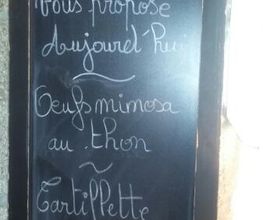 Vous propose
Aujourd'hui
Oeufs mimosa
au thon
Tartiflette